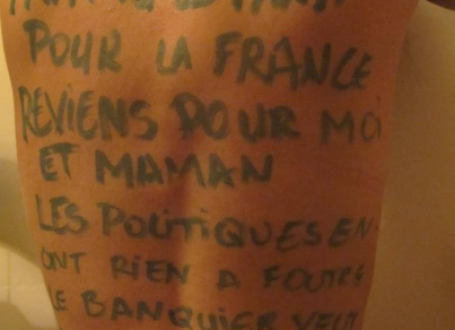 POUR LA FRANCE
REVIENS POUR MOI
ET MAMAN
LES POLITIQUES EN
ONT RIEN A FOUTRE
LE BANQUIER VEUT